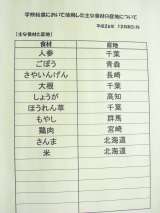 学校給食において使用した主な食材の産地について
平成24年 12月8日(木)
【主な食材の産地】
食材 産地
人参 千葉
ごぼう 青森
さやいんげん 長崎
大根 千葉
しょうが 高知
ほうれん草 千葉
もやし 群馬
鶏肉 宮崎
さんま 北海道
米 北海道